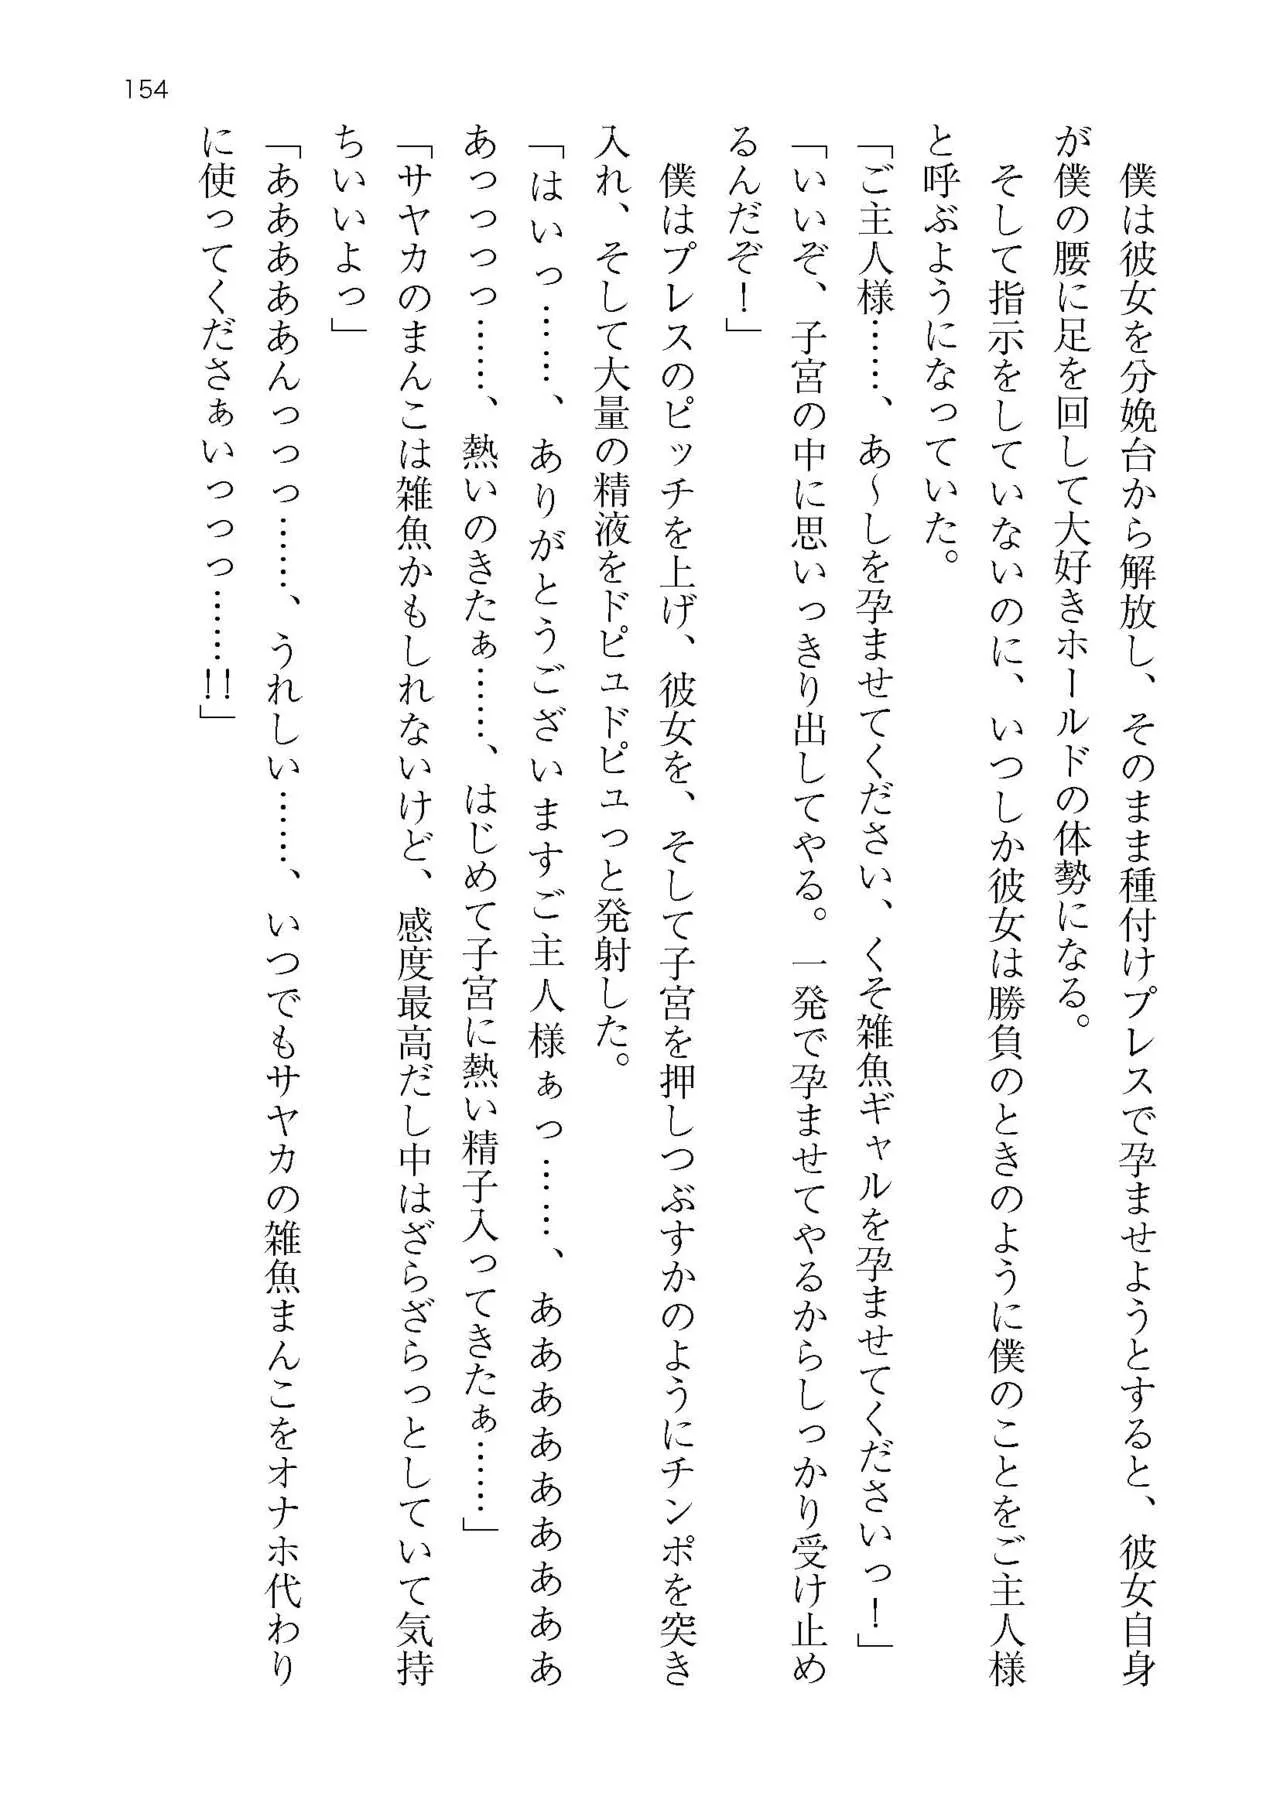 154
僕は彼女を分娩台から解放し、そのまま種付けプレスで孕ませようとすると、彼女自身
が僕の腰に足を回して大好きホールドの体勢になる。
そして指示をしていないのに、いつしか彼女は勝負のときのように僕のことをご主人様
と呼ぶようになっていた。
「ご主人様……、あ～しを孕ませてください、くそ雑魚ギャルを孕ませてくださいっ！」
「いいぞ、子宮の中に思いっきり出してやる。一発で孕ませてやるからしっかり受け止め
るんだぞ！」
僕はプレスのピッチを上げ、彼女を、そして子宮を押しつぶすかのようにチンポを突き
入れ、そして大量の精液をドピュドピュっと発射した。
「はいっ……、ありがとうございますご主人様ぁっ……、ああああああああああ
あっっっっ……、熱いのきたぁ……、はじめて子宮に熱い精子入ってきたぁ……」
「サヤカのまんこは雑魚かもしれないけど、感度最高だし中はざらざらっとしていて気持
ちいいよっ」
「あああああんっっっ……、うれしい……、いつでもサヤカの雑魚まんこをオナホ代わり
に使ってくださぁいっっっ……!!」